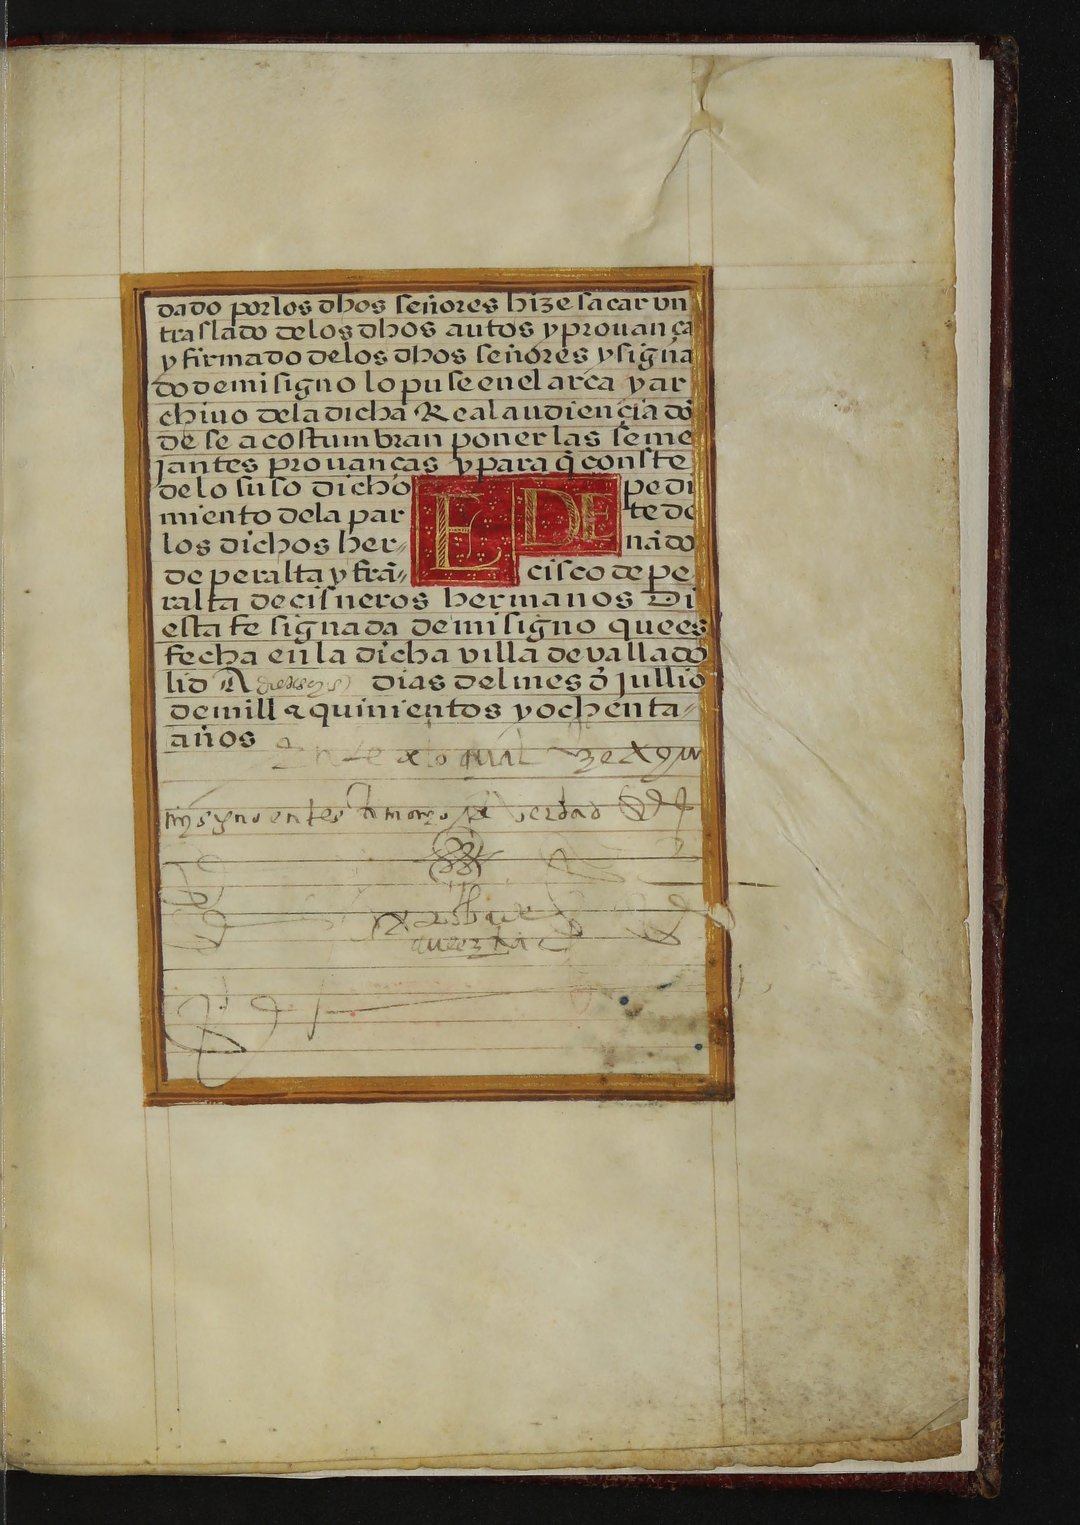 dado por los dhos señores hize sacar vn
traslado de los dhos autos y prouança
y firmado de los dhos señores y signa
do de mi signo lo puse en el arca y ar
chiuo de la dicha Real audiençia dō
de se acostumbran poner las seme
jantes prouanças y para q̄ conste
de lo suso dicho E DE pedi
miento de la par te de
los dichos her- nādo
de peralta y frā- cisco de pe
ralta de cisneros hermanos Di
esta fe signada de mi signo que es
fecha en la dicha villa de vallado
lid A diez e seys dias del mes ō jullio
de mill & quinientos y ochenta-
años
testimonio de verdad